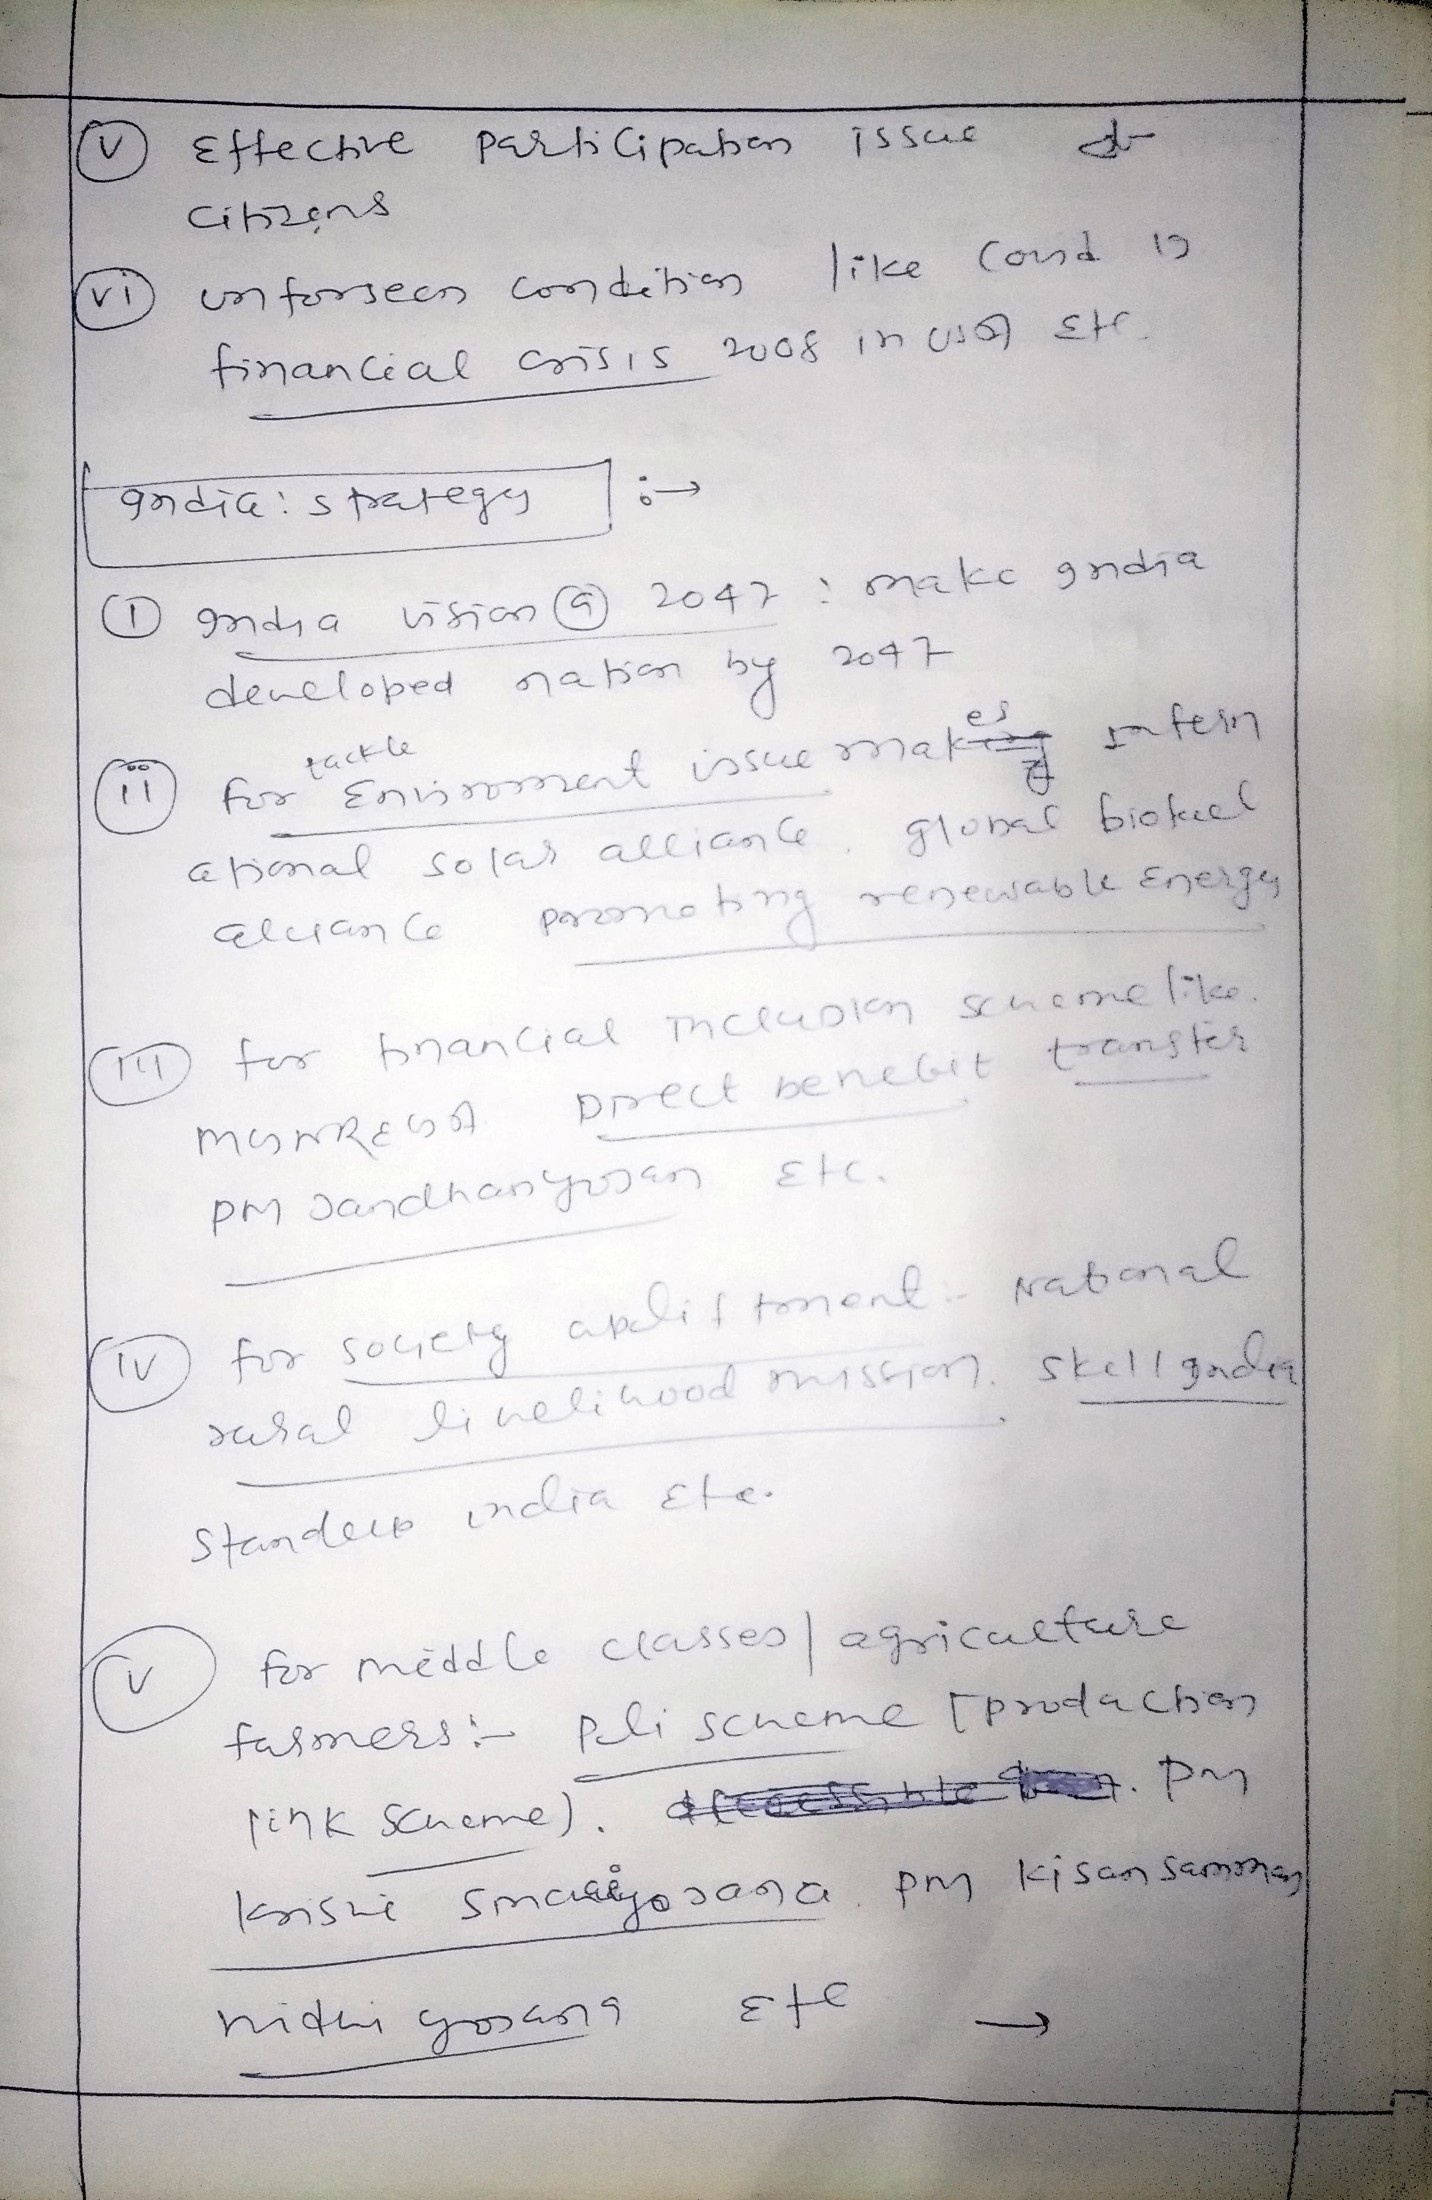 (v) Effective participation issue of
citizens
(vi) unforseen condition like Covid 19
financial crisis 2008 in USA Etc.
India : strategy :→
(i) India vision @ 2047 : make India
developed nation by 2047
(ii) for tackle Enviroment issue makes Intern
ational solar alliance, global biofuel
alliance promoting renewable Energy
(iii) for financial inclusion scheme like.
MGNREGA Direct benefit transfer
PM Jandhanyojan Etc.
(iv) for society upliftment :- National
rural livelihood mission, Skill India
Standup india Etc.
(v) for middle classes / agriculture
farmers :- Pli scheme [production
link scheme). PM
krishi yojana, PM kisan samman
nidhi yojana Etc →